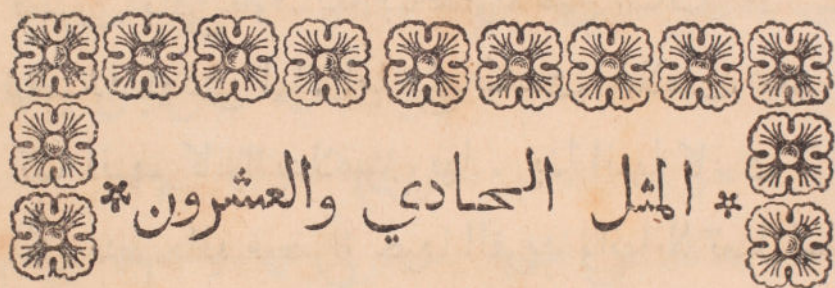 * المثل الحادي والعشرون *